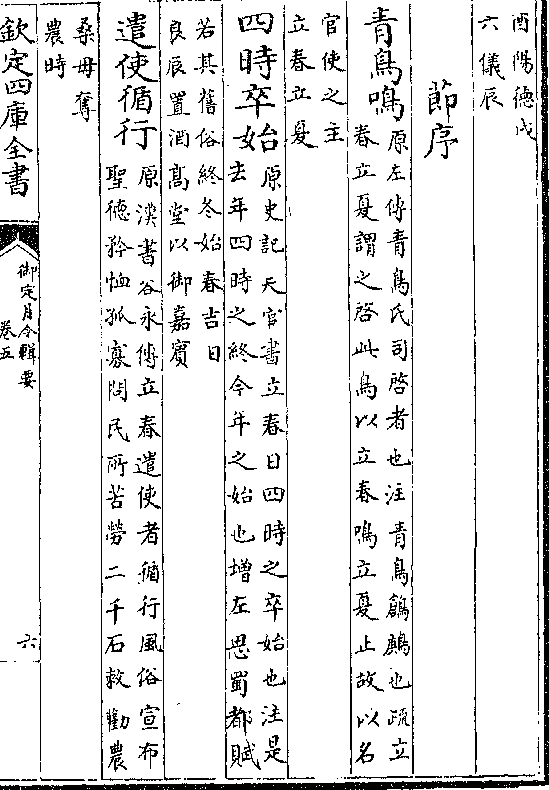 酉陽德戊
六儀辰
節序
青鳥鳴
原左傳青鳥氏司啓者也注青鳥鶬鷃也疏立
春立夏謂之啓此鳥以立春鳴立夏止故以名
官使之主
立春立夏
四時卒始
原史記天官書立春日四時之卒始也注是
去年四時之終今年之始也增左思蜀都賦
若其舊俗終冬始春吉日
良辰置酒髙堂以御嘉賓
遣使循行
原漢書谷永傳立春遣使者循行風俗宣布
聖徳矜恤孤寡問民所苦勞二千石敕勸農
桑毋奪
農時
欽定四庫全書
御定月令輯要
卷五
六